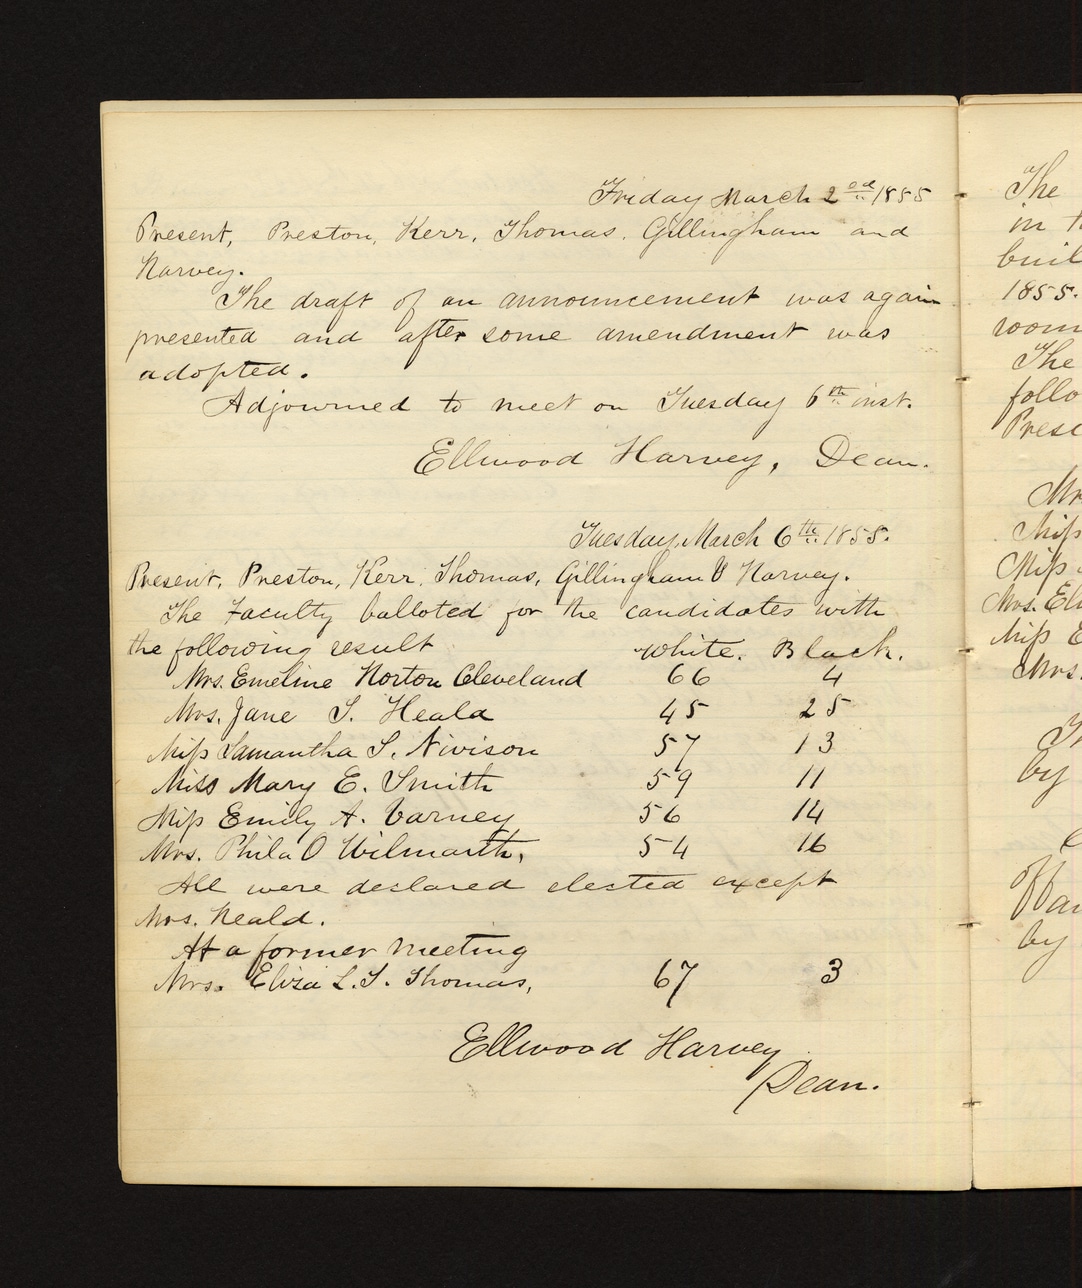 Friday March 2nd 1855
Present, Preston, Kerr, Thomas, Gillingham and
Harvey.
The draft of an announcement was again
presented and after some amendment was
adopted.
Adjourned to meet on Tuesday 6th inst.
Ellwood Harvey, Dean.
Tuesday, March 6th 1855.
Present, Preston, Kerr, Thomas, Gillingham & Harvey.
The Faculty balloted for the candidates with
the following result White. Black.
Mrs. Emeline Horton Cleveland 66 4
Mrs. Jane S. Heald 45 25
Miss Samantha S. Nivison 57 13
Miss Mary E. Smith 59 11
Miss Emily A. Varney 56 14
Mrs. Phila O Wilmarth, 54 16
All were declared elected except
Mrs. Heald.
At a former meeting
Mrs. Eliza L. S. Thomas, 67 3
Ellwood Harvey
Dean.
The
in t
buil
1855.
room
The
follo
Prese
Mr
Miss
Miss
Mrs. Eli
Miss E
Mrs.
by
by